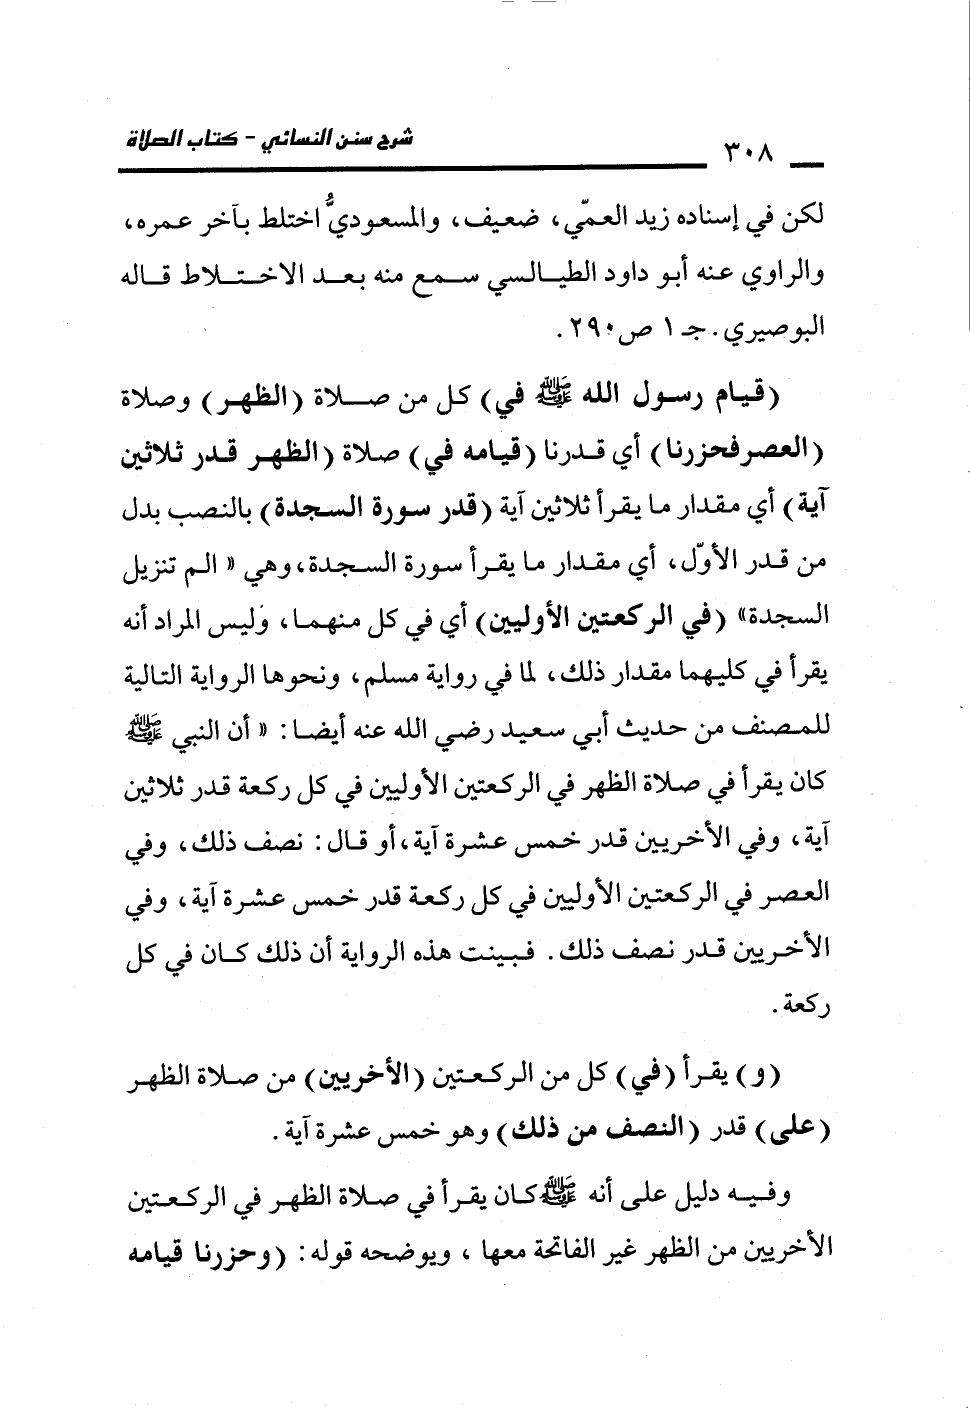 شرح سنن النسائي - كتاب الصلاة
٣٠٨
لكن في إسناده زيد العمّي، ضعيف، والمسعوديُّ اختلط بآخر عمره،
والراوي عنه أبو داود الطيالسي سمع منه بعد الاختلاط قاله
البوصيري. جـ ١ ص ٢٩٠.
(قيام رسول الله ﷺ في) كل من صلاة (الظهر) وصلاة
(العصر فحزرنا) أي قدرنا (قيامه في) صلاة (الظهر قدر ثلاثين
آية) أي مقدار ما يقرأ ثلاثين آية (قدر سورة السجدة) بالنصب بدل
من قدر الأوّل، أي مقدار ما يقرأ سورة السجدة، وهي « الم تنزيل
السجدة» (في الركعتين الأوليين) أي في كل منهما، وليس المراد أنه
يقرأ في كليهما مقدار ذلك، لما في رواية مسلم، ونحوها الرواية التالية
للمصنف من حديث أبي سعيد رضي الله عنه أيضا: « أن النبي ﷺ
كان يقرأ في صلاة الظهر في الركعتين الأوليين في كل ركعة قدر ثلاثين
آية، وفي الأخريين قدر خمس عشرة آية، أو قال: نصف ذلك، وفي
العصر في الركعتين الأوليين في كل ركعة قدر خمس عشرة آية، وفي
الأخريين قدر نصف ذلك. فبينت هذه الرواية أن ذلك كان في كل
ركعة.
(و) يقرأ (في) كل من الركعتين (الأخريين) من صلاة الظهر
(على) قدر (النصف من ذلك) وهو خمس عشرة آية.
وفيه دليل على أنه ﷺ كان يقرأ في صلاة الظهر في الركعتين
الأخريين من الظهر غير الفاتحة معها ، ويوضحه قوله: (وحزرنا قيامه